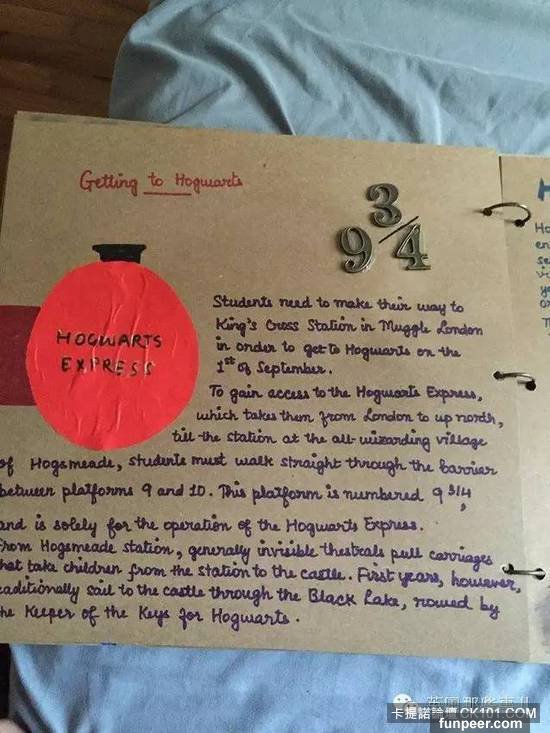 Getting to Hogwarts
9 3/4
HOGWARTS
EXPRESS
Students need to make their way to
King's Cross Station in Muggle London
in order to get to Hogwarts on the
1st of September.
To gain access to the Hogwarts Express,
which takes them from London to up north,
till the station at the all-wizarding village
of Hogsmeade, students must walk straight through the barrier
between platforms 9 and 10. This platform is numbered 9 3/4,
and is solely for the operation of the Hogwarts Express.
From Hogsmeade station, generally invisible thestrals pull carriages
that take children from the station to the castle. First years, however,
traditionally sail to the castle through the Black Lake, rowed by
the Keeper of the Keys for Hogwarts.
H
Ho
en
se
vi
ye
T
英国那些事儿
卡提諾論壇 CK101.COM
funpeer.com